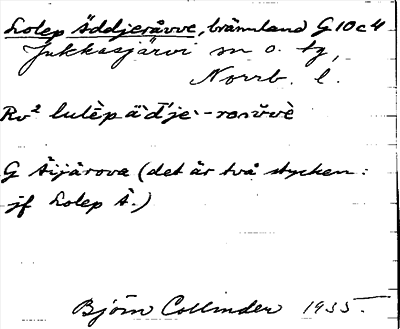 Lolep Äddjeråvve, brännland G10c4
Jukkasjärvi sn o. tg,
Norrb. l.
Rv² lulèp ä̀d́je·-rɑsv̆vè
G Äijärova (det är två stycken:
jf Lolep Ä.)
Björn Collinder 1935.